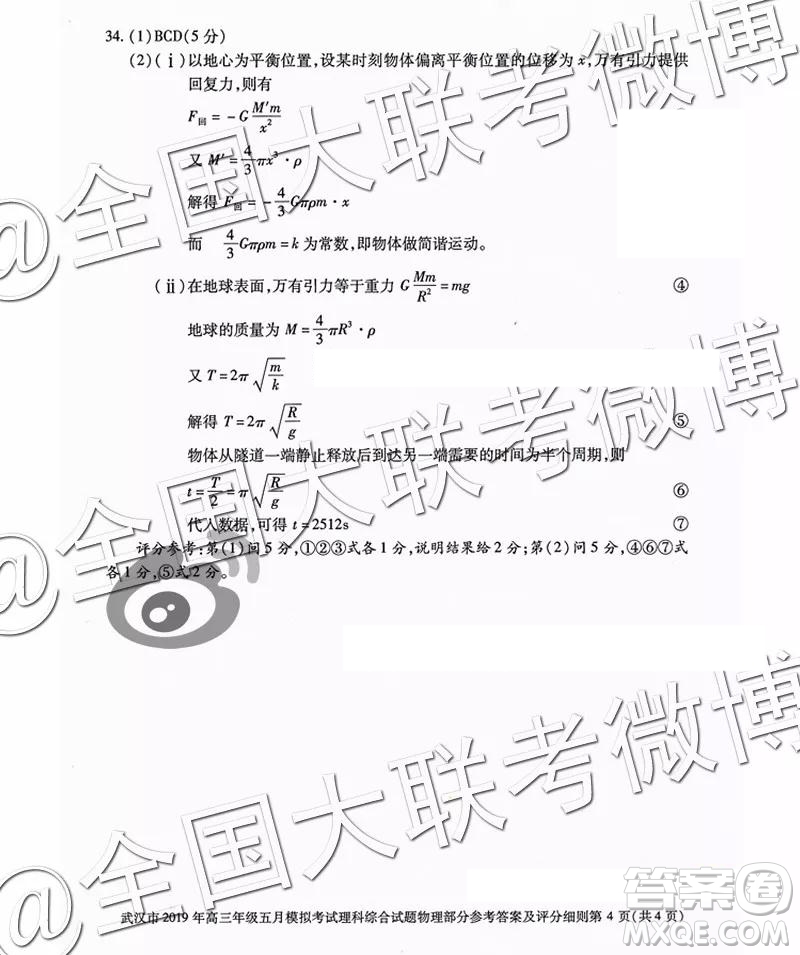 34. (1)BCD(5分)
(2)(ⅰ)以地心为平衡位置,设某时刻物体偏离平衡位置的位移为 x,万有引力提供
回复力,则有
F回 = -G M′m/x²
又 M′ = 4/3 πx³·ρ
解得 F回 = -4/3 Gπρm·x
而 4/3 Gπρm = k 为常数,即物体做简谐运动。
(ⅱ)在地球表面,万有引力等于重力 G Mm/R² = mg ④
地球的质量为 M = 4/3 πR³·ρ
又 T = 2π √(m/k)
解得 T = 2π √(R/g) ⑤
物体从隧道一端静止释放后到达另一端需要的时间为半个周期,则
t = T/2 = π √(R/g) ⑥
代入数据,可得 t = 2512s ⑦
评分参考:第(1)问5分,①②③式各1分,说明结果给2分;第(2)问5分,④⑥⑦式
各1分,⑤式2分。
武汉市2019年高三年级五月模拟考试理科综合试题物理部分参考答案及评分细则第4页(共4页)
@全国大联考微博
@全国大联考微博
答案卷
MXQE.COM